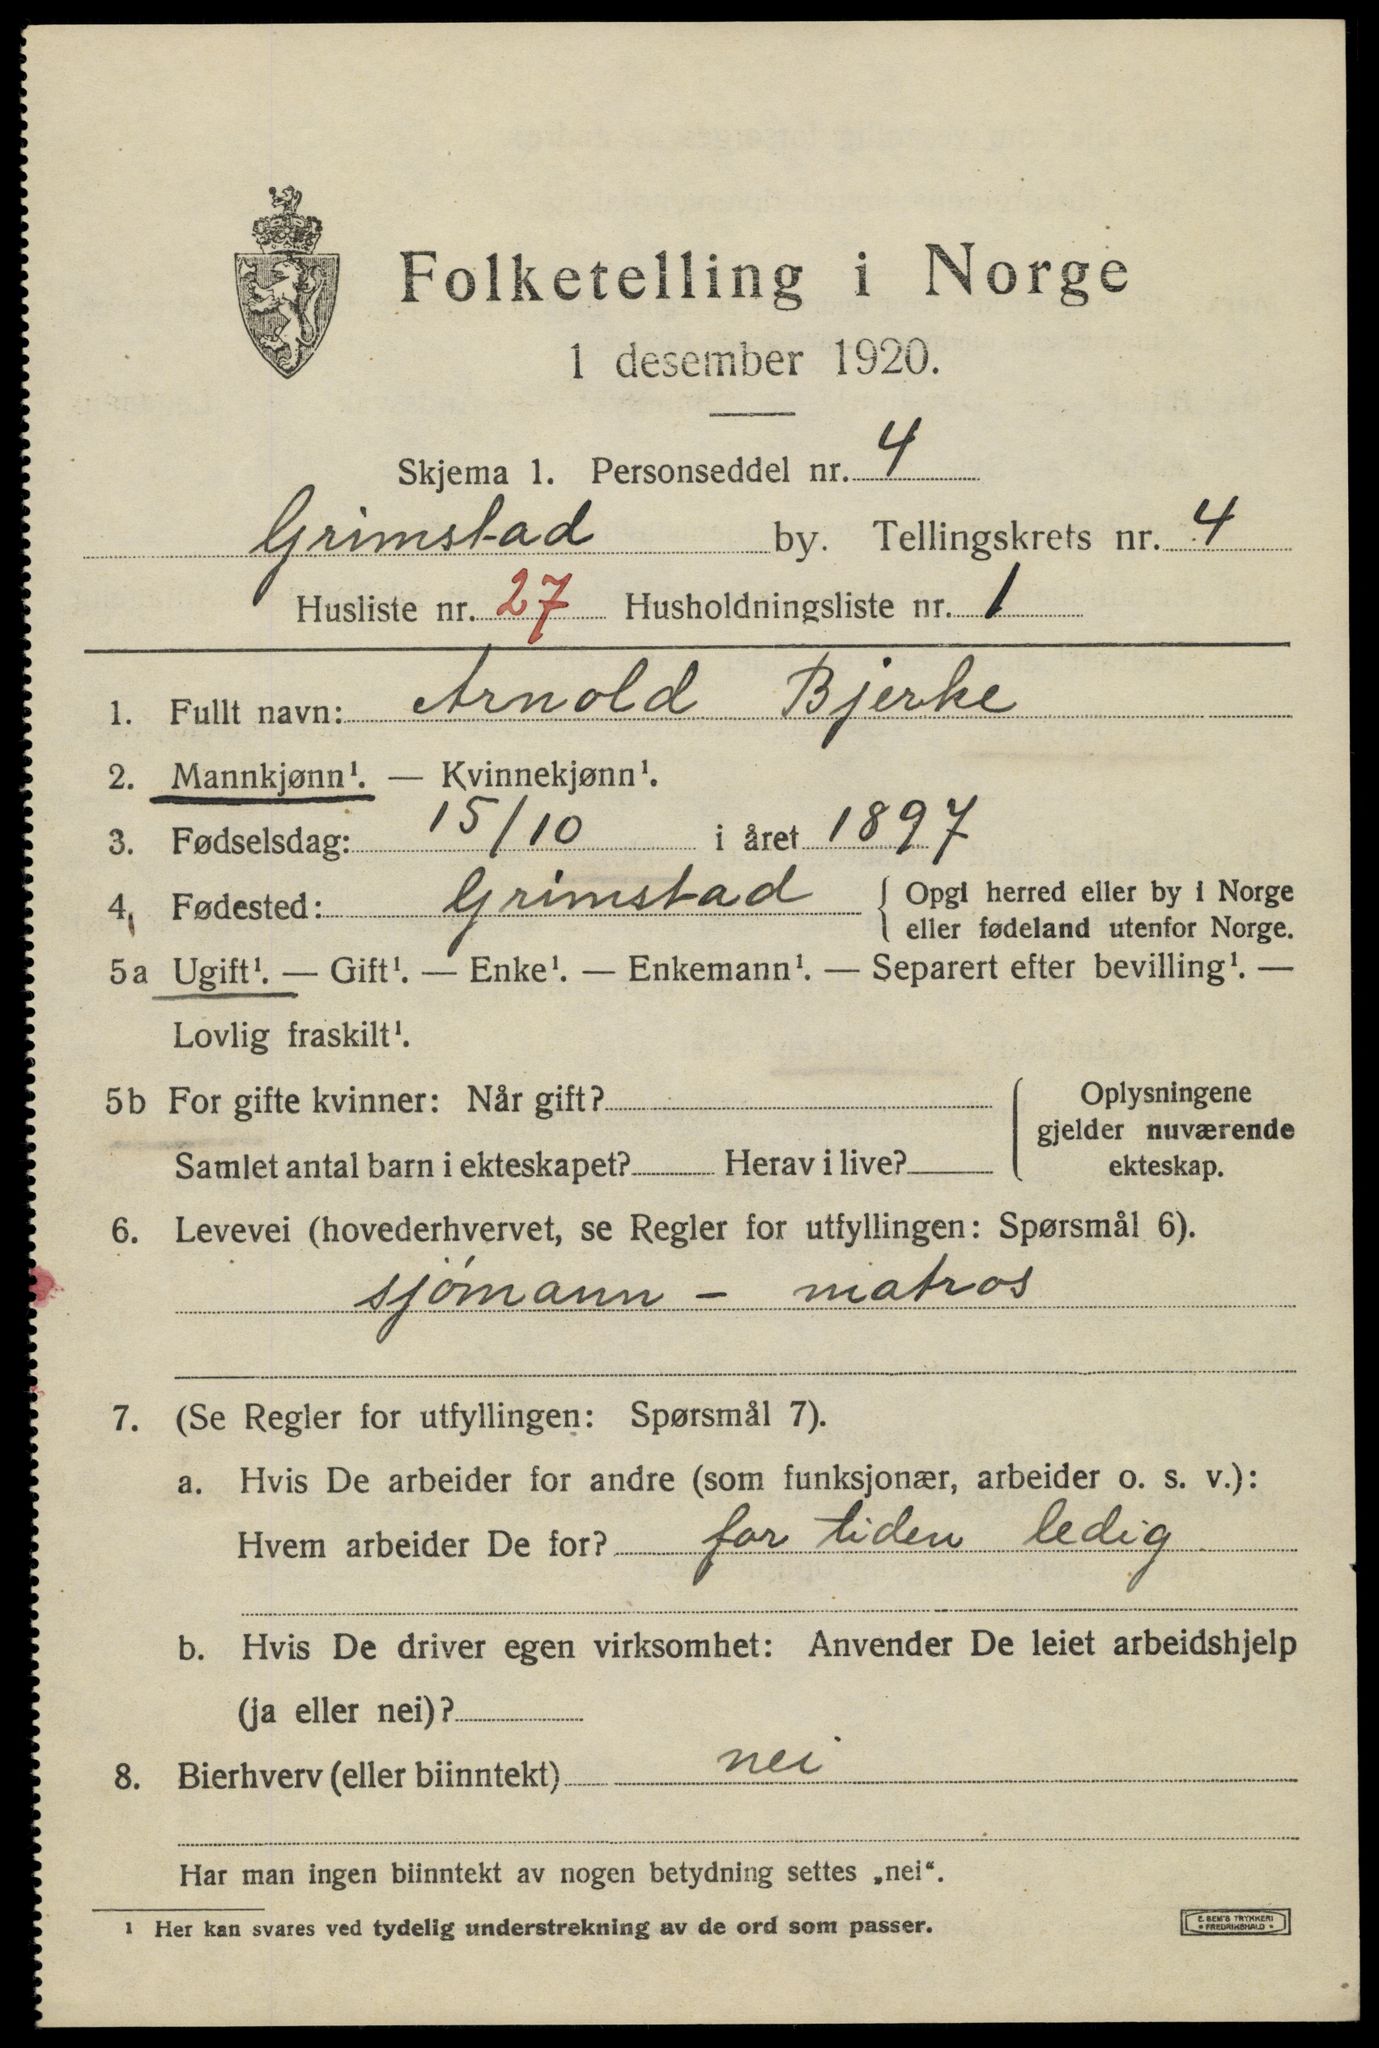 Folketelling i Norge
1 desember 1920.
Skjema 1. Personseddel nr. 4
Grimstad by. Tellingskrets nr. 4
Husliste nr. 27 Husholdningsliste nr. 1
1. Fullt navn: Arnold Bjerke
2. Mannkjønn¹. — Kvinnekjønn¹.
3. Fødselsdag: 15/10 i året 1897
4. Fødested: Grimstad { Opgi herred eller by i Norge
eller fødeland utenfor Norge.
5a Ugift¹. — Gift¹. — Enke¹. — Enkemann¹. — Separert efter bevilling¹. —
Lovlig fraskilt¹.
5b For gifte kvinner: Når gift? Oplysningene
gjelder nuværende
Samlet antal barn i ekteskapet? Herav i live? ekteskap.
6. Levevei (hovederhvervet, se Regler for utfyllingen: Spørsmål 6).
sjómann – matros
7. (Se Regler for utfyllingen: Spørsmål 7).
a. Hvis De arbeider for andre (som funksjonær, arbeider o. s. v.):
Hvem arbeider De for? for tiden ledig
b. Hvis De driver egen virksomhet: Anvender De leiet arbeidshjelp
(ja eller nei)?
8. Bierhverv (eller biinntekt) nei
Har man ingen biinntekt av nogen betydning settes „nei“.
¹ Her kan svares ved tydelig understrekning av de ord som passer.
E. SEM'S TRYKKERI
FREDRIKSHALD